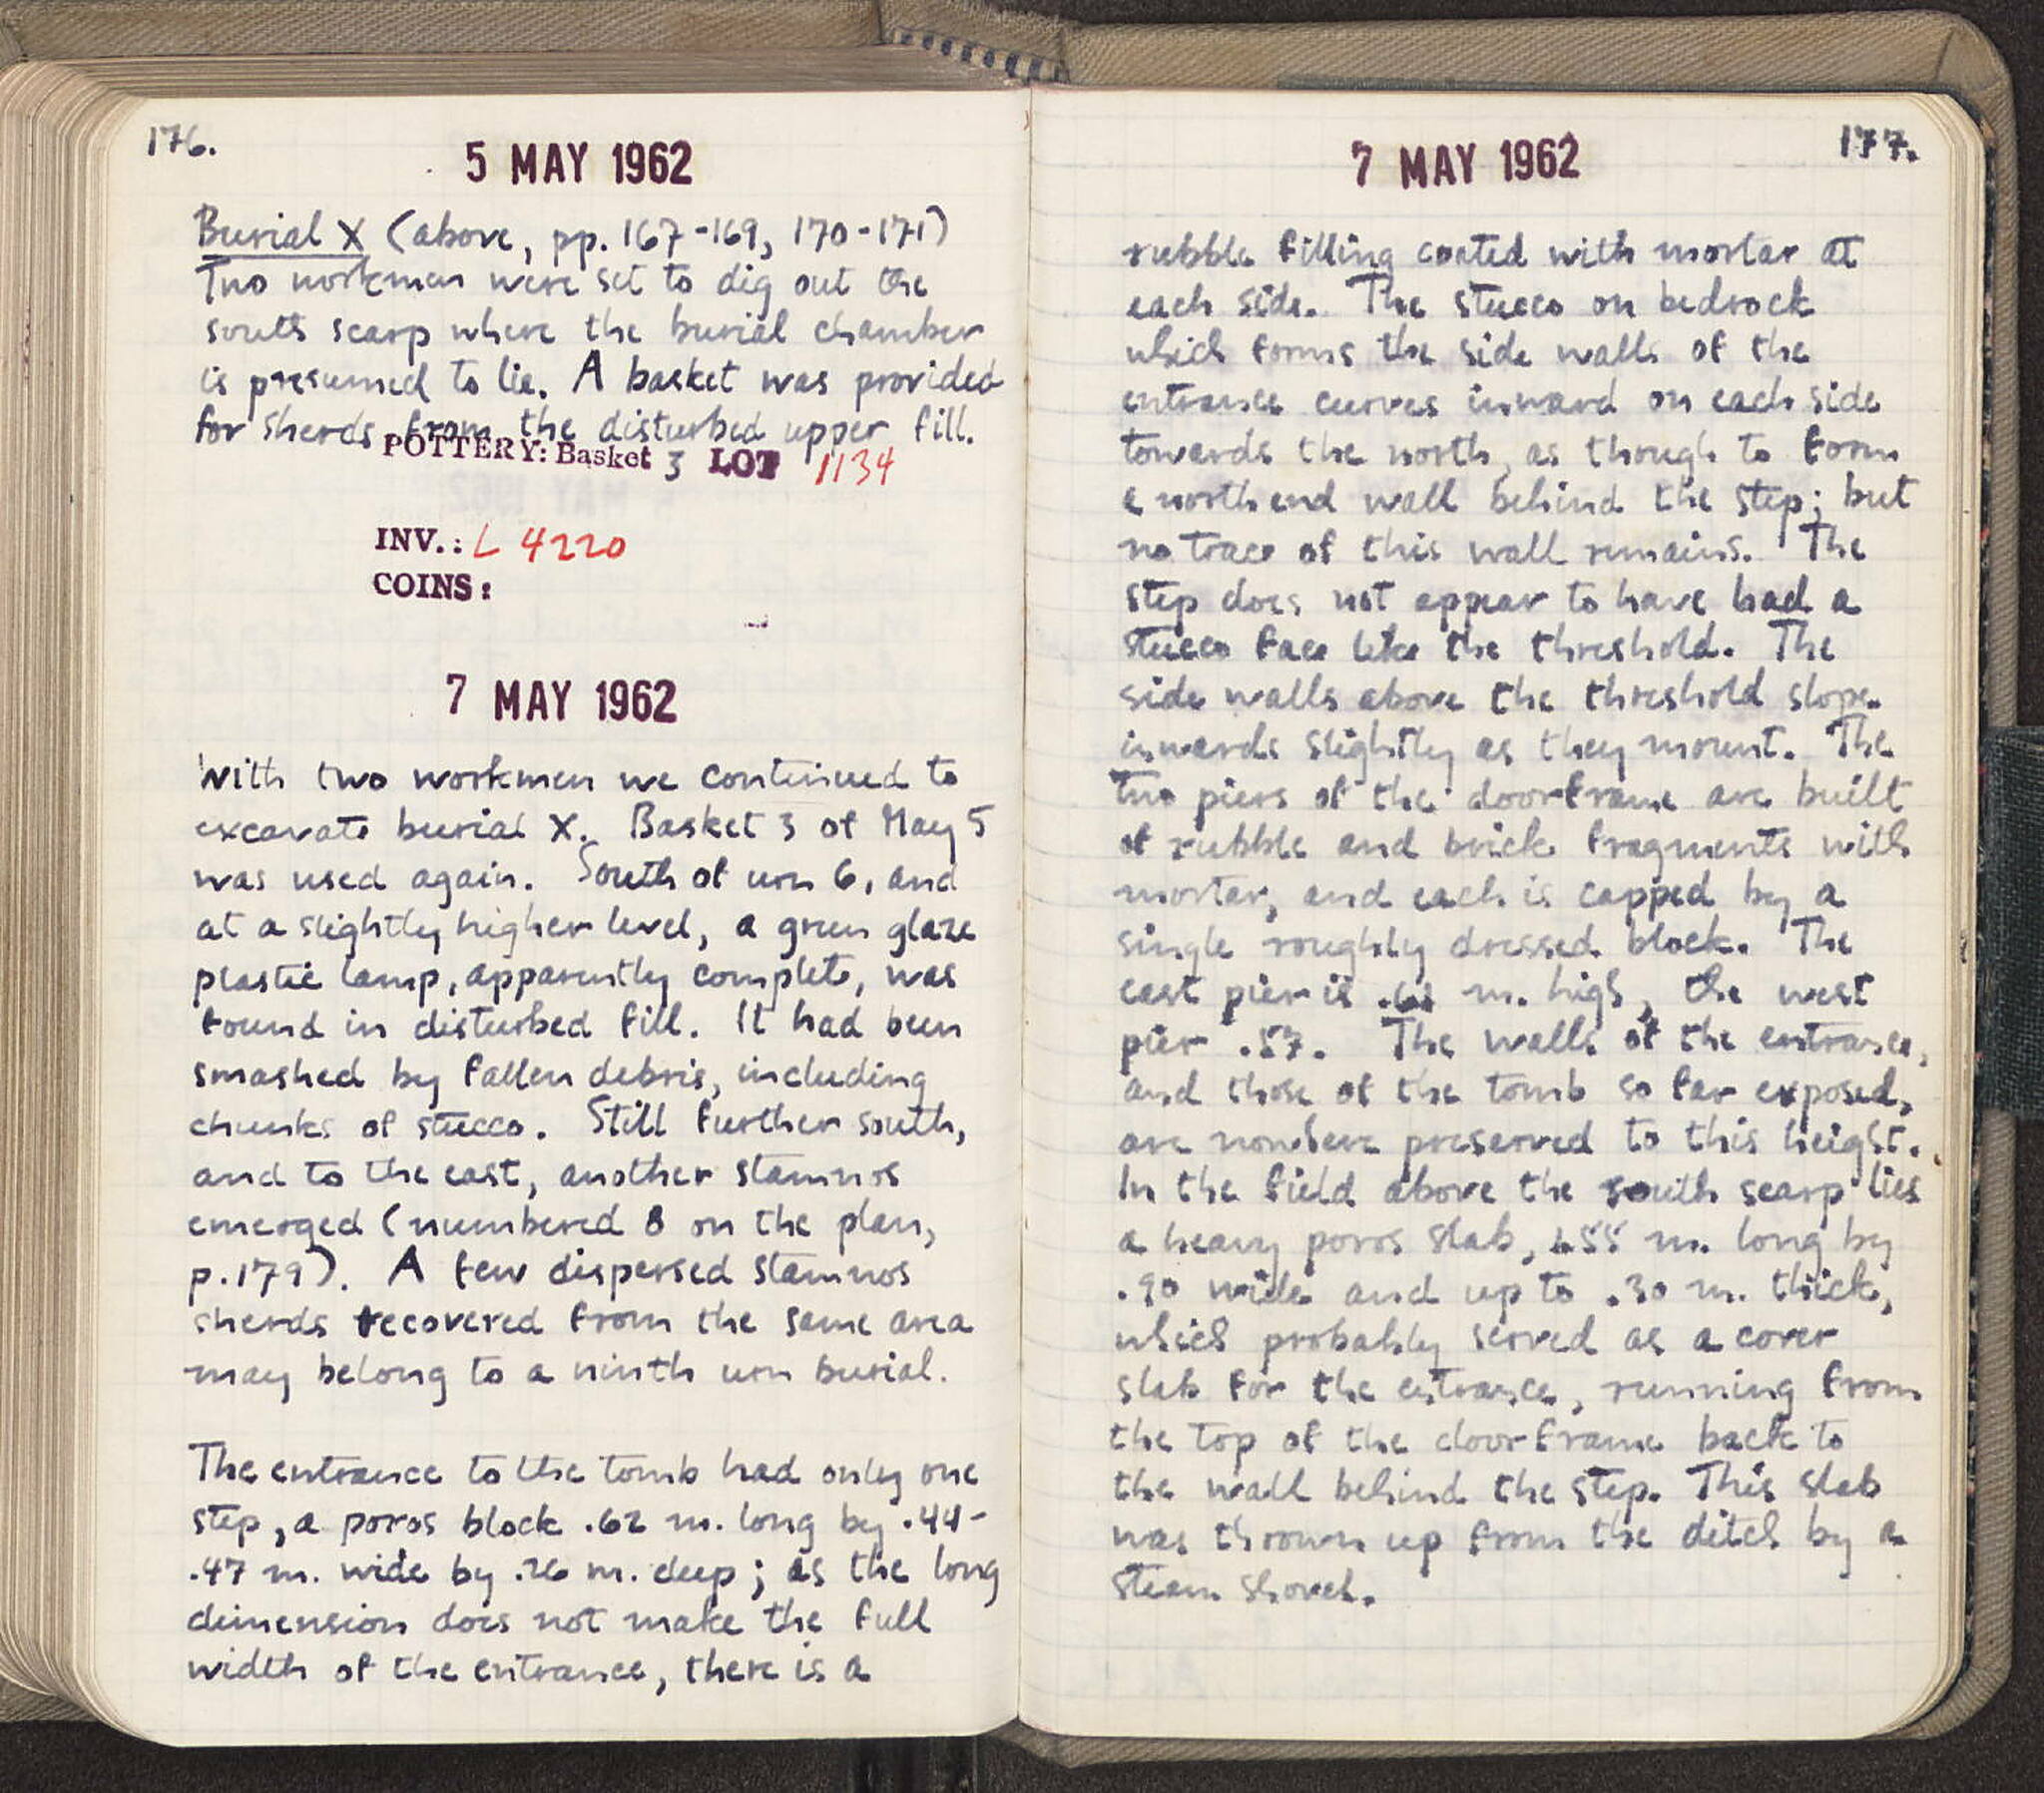 176.
5 MAY 1962
Burial X (above, pp. 167-169, 170-171)
Two workmen were set to dig out the
south scarp where the burial chamber
is presumed to lie. A basket was provided
for sherds from the disturbed upper fill.
POTTERY: Basket 3 LOT 1134
INV.: L 4220
COINS:
7 MAY 1962
With two workmen we continued to
excavate burial X. Basket 3 of May 5
was used again. South of urn 6, and
at a slightly higher level, a green glaze
plastic lamp, apparently complete, was
found in disturbed fill. It had been
smashed by fallen debris, including
chunks of stucco. Still further south,
and to the east, another stamnos
emerged (numbered 8 on the plan,
p.179). A few dispersed stamnos
sherds recovered from the same area
may belong to a ninth urn burial.
The entrance to the tomb had only one
step, a poros block .62 m. long by .44-
.47 m. wide by .26 m. deep; as the long
dimension does not make the full
width of the entrance, there is a
177.
7 MAY 1962
rubble filling coated with mortar at
each side. The stucco on bedrock
which forms the side walls of the
entrance curves inward on each side
towards the north, as though to form
a north end wall behind the step; but
no trace of this wall remains. The
step does not appear to have had a
stucco face like the threshold. The
side walls above the threshold slope
inwards slightly as they mount. The
two piers of the doorframe are built
of rubble and brick fragments with
mortar, and each is capped by a
single roughly dressed block. The
east pier is m. high, the west
pier .57. The walls of the entrance,
and those of the tomb so far exposed,
are nowhere preserved to this height.
In the field above the south scarp lies
a heavy poros slab, 1.55 m. long by
.90 wide and up to .30 m. thick,
which probably served as a cover
slab for the entrance, running from
the top of the doorframe back to
the wall behind the step. This slab
was thrown up from the ditch by a
steam shovel.